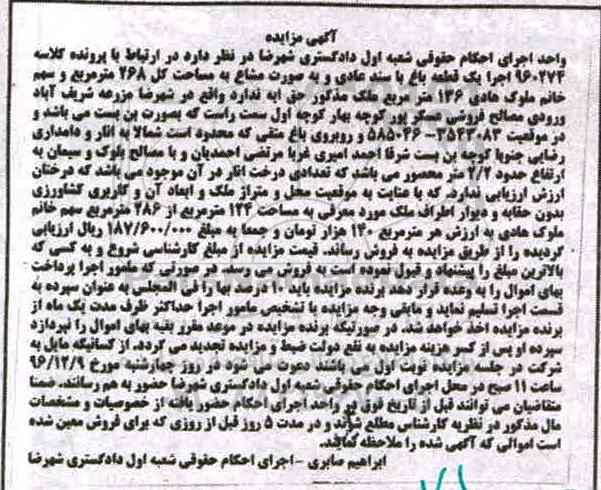 آگهی مزایده
واحد اجرای احکام حقوقی شعبه اول دادگستری شهرضا در نظر دارد در ارتباط با پرونده کلاسه
۹۶۰۲۷۴ اجرا یک قطعه باغ با سند عادی و به صورت مشاع به مساحت کل ۲۶۸ مترمربع و سهم
خانم ملوک هادی ۱۳۶ متر مربع ملک مذکور حق ابه ندارد واقع در شهرضا مزرعه شریف آباد
ورودی مصالح فروشی عسکر پور کوچه بهار کوچه اول سمت راست که بصورت بن بست می باشد و
در موقعیت ۳۵۴۳۰۸۳– ۵۸۵۰۴۶ و روبروی باغ متقی که محدود است شمالا به انار و دامداری
رضایی جنوبا کوچه بن بست شرقا احمد امیری غربا مرتضی احمدیان و با مصالح بلوک و سیمان به
ارتفاع حدود ۲/۲ متر محصور می باشد که تعدادی درخت انار در آن موجود می باشد که درختان
ارزش ارزیابی ندارد. که با عنایت به موقعیت محل و متراژ ملک و ابعاد آن و کاربری کشاورزی
بدون حقابه و دیوار اطراف ملک مورد معرفی به مساحت ۱۳۴ مترمربع از ۲۸۶ مترمربع سهم خانم
ملوک هادی به ارزش هر مترمربع ۱۴۰ هزار تومان و جمعا به مبلغ ۱۸۷/۶۰۰/۰۰۰ ریال ارزیابی
گردیده را از طریق مزایده به فروش رساند. قیمت مزایده از مبلغ کارشناسی شروع و به کسی که
بالاترین مبلغ را پیشنهاد و قبول نموده است به فروش می رسد. در صورتی که مامور اجرا پرداخت
بهای اموال را به وعده قرار دهد برنده مزایده باید ۱۰ درصد بها را فی المجلس به عنوان سپرده به
قسمت اجرا تسلیم نماید و مابقی وجه مزایده با تشخیص مامور اجرا حداکثر ظرف مدت یک ماه از
برنده مزایده اخذ خواهد شد. در صورتیکه برنده مزایده در موعد مقرر بقیه بهای اموال را نپردازد
سپرده او پس از کسر هزینه مزایده به نفع دولت ضبط و مزایده تجدید می گردد. از کسانیکه مایل به
شرکت در جلسه مزایده نوبت اول می باشند دعوت می شود در روز چهارشنبه مورخ ۹۶/۱۲/۹
ساعت ۱۱ صبح در محل اجرای احکام حقوقی شعبه اول دادگستری شهرضا حضور به هم رسانند. ضمنا
متقاضیان می توانند قبل از تاریخ فوق در واحد اجرای احکام حضور یافته از خصوصیات و مشخصات
مال مذکور در نظریه کارشناس مطلع شوند و در مدت ۵ روز قبل از روزی که برای فروش معین شده
است اموالی که آگهی شده را ملاحظه نمایند.
ابراهیم صابری –اجرای احکام حقوقی شعبه اول دادگستری شهرضا